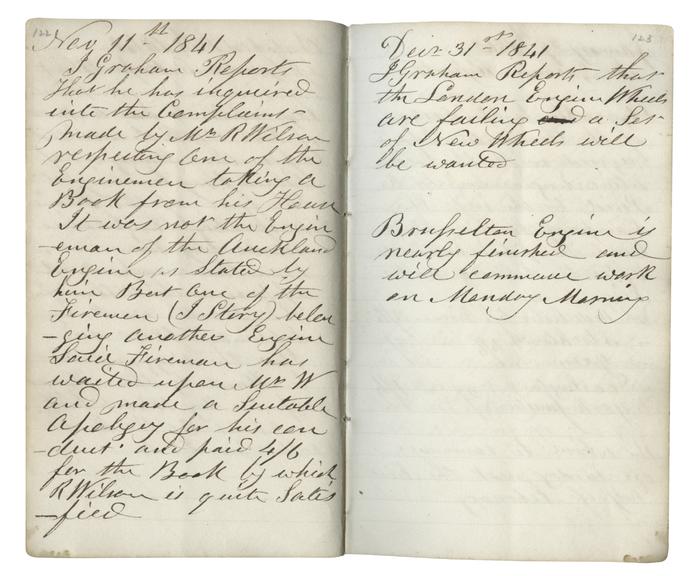 122
Nov 11th 1841
J Graham Reports
that he has inquired
into the Complaint
made by Mr R Wilson
respecting one of the
Enginemen taking a
Book from his House
It was not the Engin
-eman of the Auckland
Engine as Stated by
him But one of the
Firemen (J Story) belon
-ging another Engine
Said Fireman has
waited upon Mr W
and made a Suitable
Apology for his con
-duct and paid 4/6
for the Book by which
R Wilson is quite Satis
-fied
123
Decr 31st 1841
J Graham Reports that
the London Engine Wheels
are failing and a Set
of New Wheels will
be wanted
Brusselton Engine is
nearly finished and
will commence work
on Monday Morning